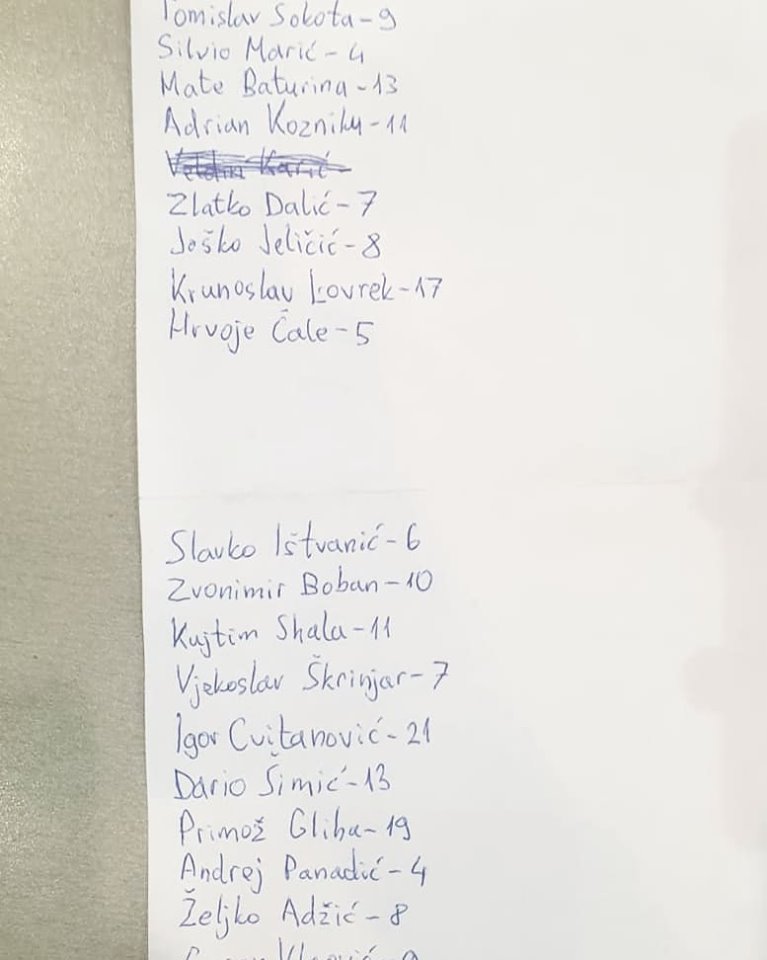 Tomislav Šokota-9
Silvio Marić-4
Mate Baturina-13
Adrian Kozniku-11
Zlatko Dalić-7
Joško Jeličić-8
Krunoslav Lovrek-17
Hrvoje Čale-5
Slavko Ištvanić-6
Zvonimir Boban-10
Kujtim Shala-11
Vjekoslav Škrinjar-7
Igor Cvitanović-21
Dario Šimić-13
Primož Gliha-19
Andrej Panadić-4
Željko Adžić-8